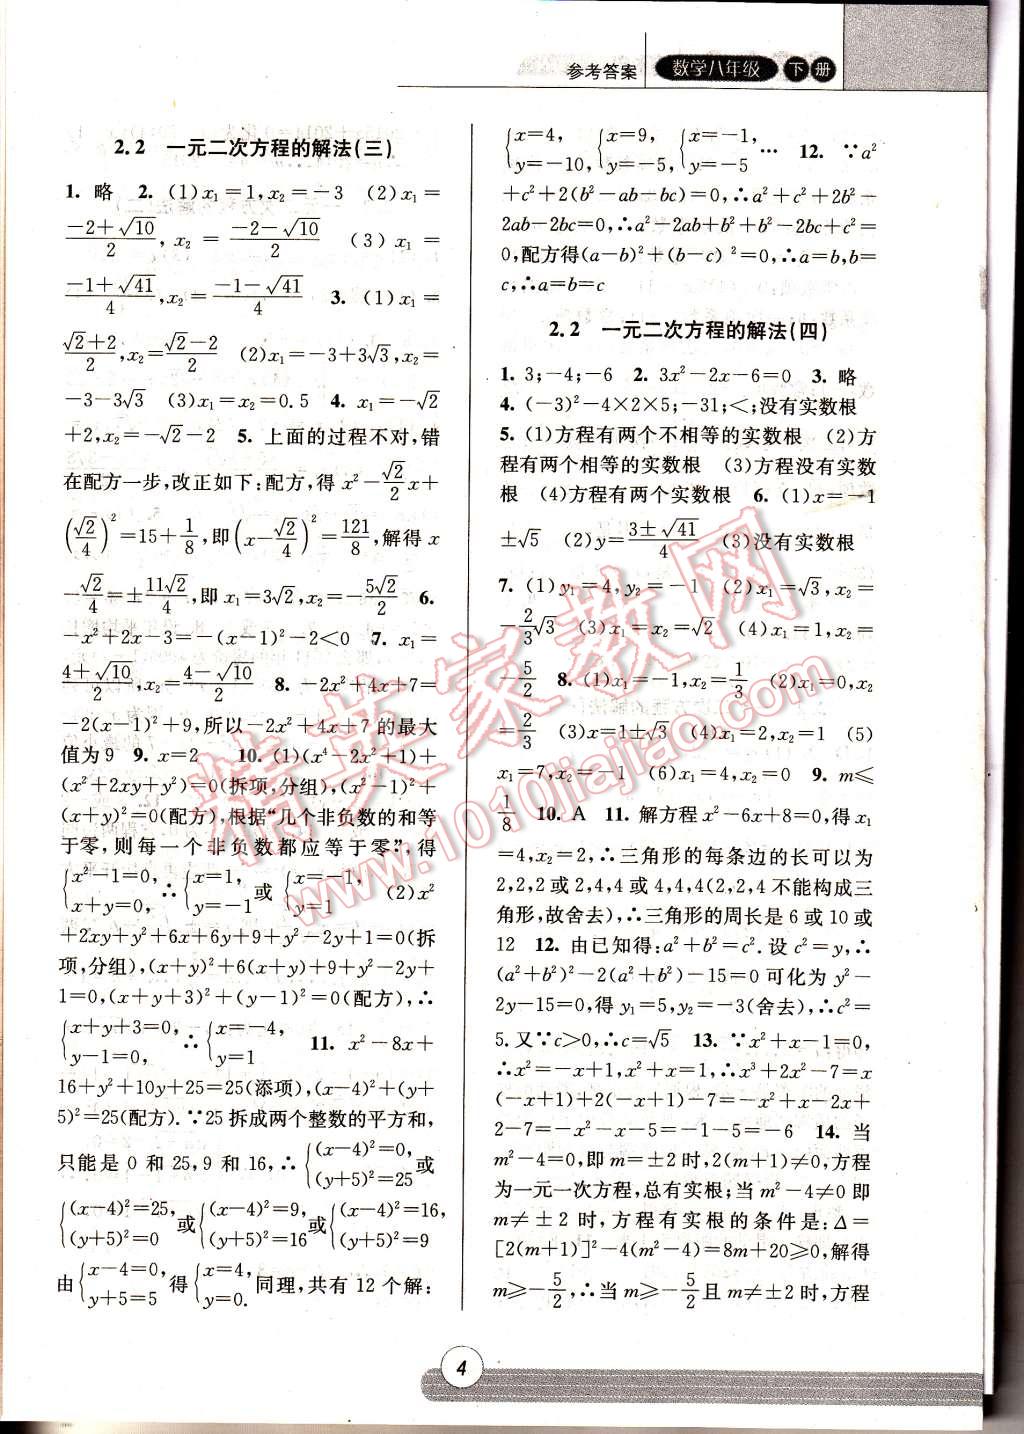 参考答案 数学八年级 下册
2.2 一元二次方程的解法(三)
1. 略 2. (1)x₁=1,x₂=-3 (2)x₁=
(-2+√10)/2, x₂=(-2-√10)/2 (3)x₁=
(-1+√41)/4,x₂=(-1-√41)/4 3. (1)x₁=
(√2+2)/2,x₂=(√2-2)/2 (2)x₁=-3+3√3,x₂=
-3-3√3 (3)x₁=x₂=0.5 4. x₁=-√2
+2,x₂=-√2-2 5. 上面的过程不对,错
在配方一步,改正如下:配方,得 x²-(√2/2)x+
(√2/4)²=15+1/8,即(x-√2/4)²=121/8,解得 x
-√2/4=±11√2/4,即 x₁=3√2,x₂=-5√2/2 6.
-x²+2x-3=-(x-1)²-2<0 7. x₁=
(4+√10)/2,x₂=(4-√10)/2 8. -2x²+4x+7=
-2(x-1)²+9,所以-2x²+4x+7 的最大
值为 9 9. x=2 10. (1)(x⁴-2x²+1)+
(x²+2xy+y²)=0(拆项,分组),(x²-1)²+
(x+y)²=0(配方),根据“几个非负数的和等
于零,则每一个非负数都应等于零”,得
{x²-1=0, y=1 ∴{x=1, y=-1 或 {x=-1, y=1 (2)x²
+2xy+y²+6x+6y+9+y²-2y+1=0(拆
项,分组),(x+y)²+6(x+y)+9+y²-2y+
1=0,(x+y+3)²+(y-1)²=0(配方),∴
{x+y+3=0, y-1=0, ∴{x=-4, y=1 11. x²-8x+
16+y²+10y+25=25(添项),(x-4)²+(y+
5)²=25(配方).∵25 拆成两个整数的平方和,
只能是 0 和 25,9 和 16,∴{(x-4)²=0, (y+5)²=25 或
{(x-4)²=25, (y+5)²=0 或{(x-4)²=9, (y+5)²=16 或{(x-4)²=16, (y+5)²=9
由{x-4=0, y+5=5 得{x=4, y=0. 同理,共有 12 个解:
{x=4, y=-10, {x=9, y=-5, {x=-1, y=-5 … 12. ∵a²
+c²+2(b²-ab-bc)=0,∴a²+c²+2b²-
2ab-2bc=0,∴a²-2ab+b²+b²-2bc+c²=
0,配方得(a-b)²+(b-c)²=0,∴a=b,b=
c,∴a=b=c
2.2 一元二次方程的解法(四)
1. 3;-4;-6 2. 3x²-2x-6=0 3. 略
4. (-3)²-4×2×5;-31;<;没有实数根
5. (1)方程有两个不相等的实数根 (2)方
程有两个相等的实数根 (3)方程没有实数
根 (4)方程有两个实数根 6. (1)x=-1
±√5 (2)y=(3±√41)/4 (3)没有实数根
7. (1)y₁=4,y₂=-1 (2)x₁=√3,x₂=
-(2/3)√3 (3)x₁=x₂=√2 (4)x₁=1,x₂=
-5/2 8. (1)x₁=-1,x₂=1/3 (2)x₁=0,x₂
=2/3 (3)x=1±√3 (4)x₁=2,x₂=1 (5)
x₁=7,x₂=-1 (6)x₁=4,x₂=0 9. m≤
1/8 10. A 11. 解方程 x²-6x+8=0,得 x₁
=4,x₂=2,∴三角形的每条边的长可以为
2,2,2 或 2,4,4 或 4,4,4(2,2,4 不能构成三
角形,故舍去),∴三角形的周长是 6 或 10 或
12 12. 由已知得:a²+b²=c².设 c²=y,∴
(a²+b²)²-2(a²+b²)-15=0 可化为 y²-
2y-15=0,得 y₁=5,y₂=-3(舍去),∴c²=
5.又∵c>0,∴c=√5 13. ∵x²+x-1=0,
∴x²=-x+1,x²+x=1,∴x³+2x²-7=x
(-x+1)+2(-x+1)-7=-x²+x-2x+
2-7=-x²-x-5=-1-5=-6 14. 当
m²-4=0,即 m=±2 时,2(m+1)≠0,方程
为一元一次方程,总有实根;当 m²-4≠0 即
m≠±2 时,方程有实根的条件是:Δ=
[2(m+1)]²-4(m²-4)=8m+20≥0,解得
m≥-5/2,∴当 m≥-5/2 且 m≠±2 时,方程
精英家教网
www.1010jiajiao.com
4